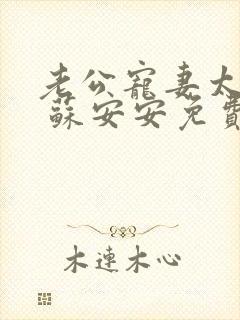 老公寵妻太
蘇安安免費
木連木心